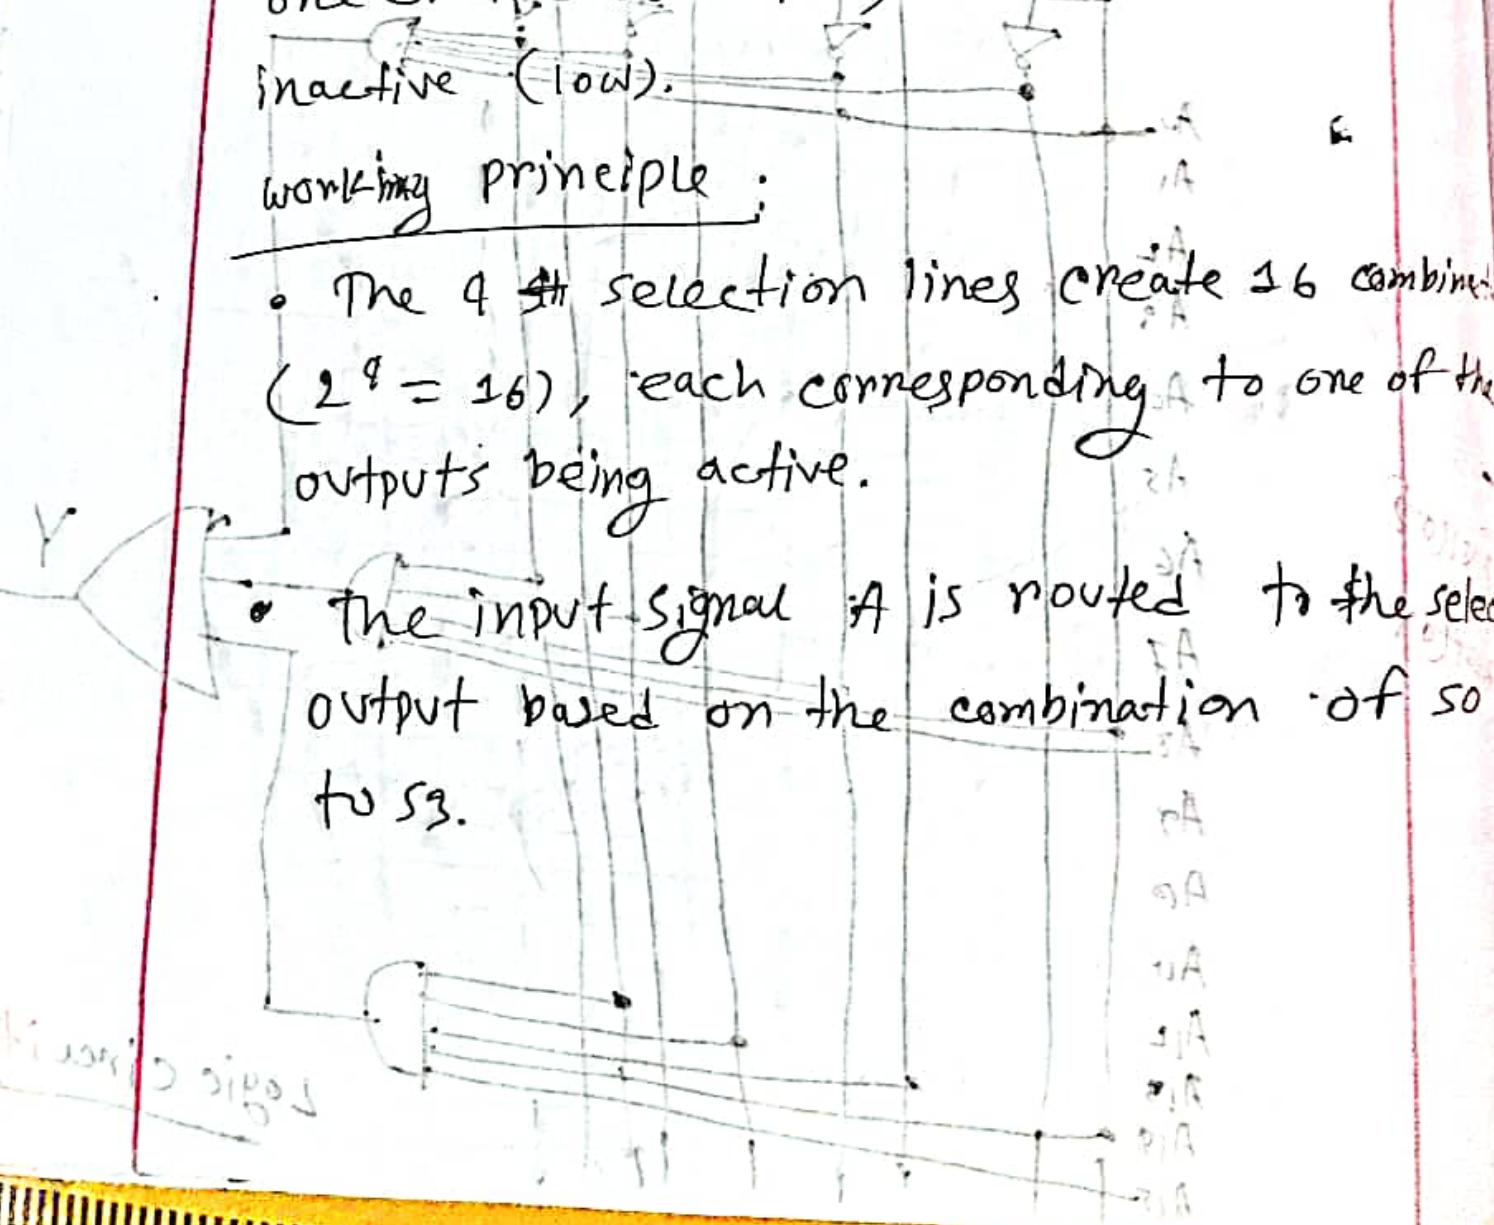 inactive (low).
working principle :
• The 4 selection lines create 16 combine
(2⁴ = 16), each corresponding to one of the
outputs being active.
• the input signal A is routed to the selec
output based on the combination of so
to s3.
Y
Logic circuit